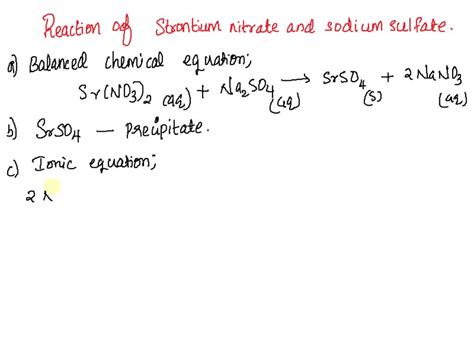 Reaction of Strontium nitrate and sodium sulfate.
a) Balanced chemical equation;
Sr(NO3)2 (aq) + Na2SO4 (aq) → SrSO4 (s) + 2NaNO3 (aq)
b) SrSO4 — precipitate.
c) Ionic equation;
2